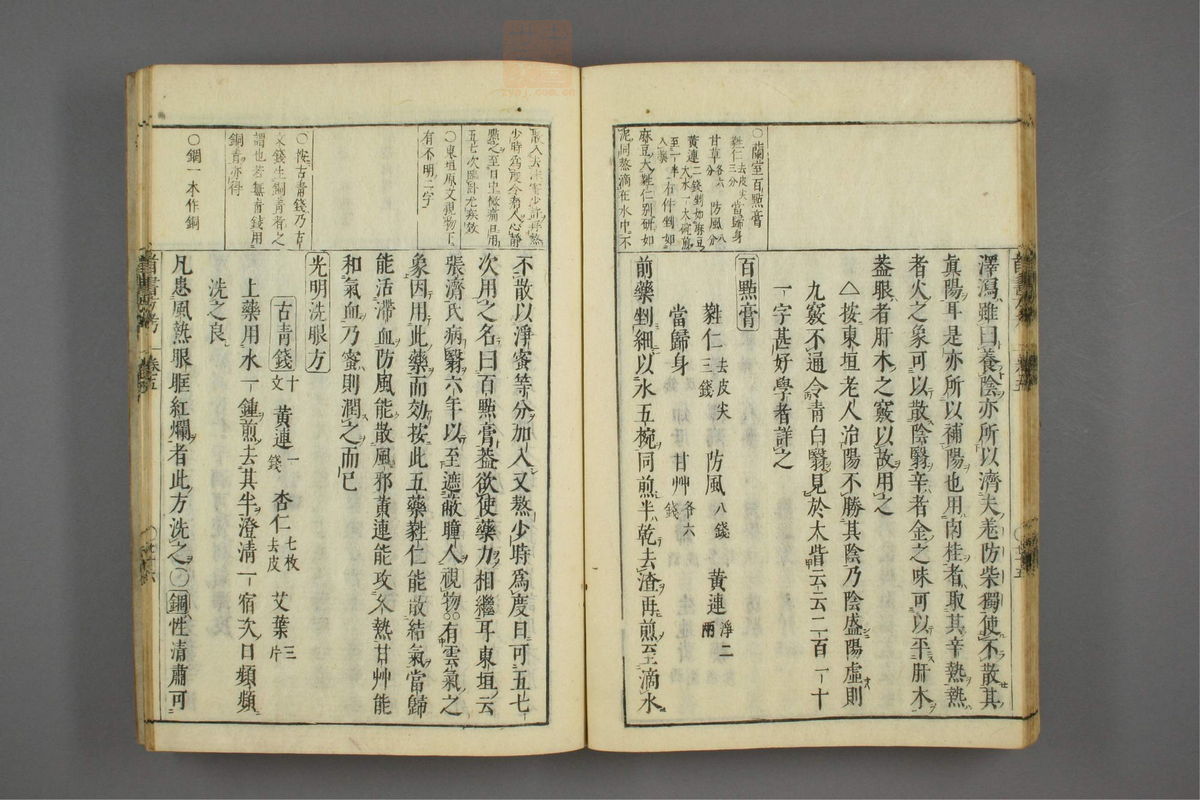 ○蘭室百點膏
蕤仁去皮尖三分 當歸身
甘草各六分 防風八分
黃連二錢剉如麻豆大水一大碗煎
至一半入藥 右件剉如
麻豆大蕤仁別研如
泥同熬滴在水中不
澤瀉雖曰養陰亦所以濟夫羌防柴獨使不散其
眞陽耳是亦所以補陽也用肉桂者取其辛熱熱
者火之象可以散陰翳辛者金之味可以平肝木
葢眼者肝木之竅以故用之
△按東垣老人治陽不勝其陰乃陰盛陽虛則
九竅不通令靑白翳見於大眥云云二百一十
一字甚好學者詳之
百點膏
蕤仁去皮尖三錢 防風八錢 黃連淨二兩
當歸身 甘艸各六錢
前藥剉細以水五椀同煎半乾去渣再煎至滴水
散入去沫蜜少許再熬
少時爲度令病人心靜
點之至目中微痛日用
五七次臨臥尤疾效
○東垣原文視物下
有不明二字
○按古靑錢乃古
文錢生銅靑者之
謂也若無靑錢用
銅靑亦得
○鋼一本作銅
不散以淨蜜等分加入又熬少時爲度日可五七
次用之名曰百點膏葢欲使藥力相繼耳東垣云
張濟氏病翳六年以至遮蔽瞳人視物○有雲氣之
象因用此藥而效按此五藥蕤仁能散結氣當歸
能活滯血防風能散風邪黃連能攻久熱甘艸能
和氣血乃蜜則潤之而已
光明洗眼方
古靑錢十文 黃連一錢 杏仁七枚去皮 艾葉三片
上藥用水一鍾煎去其半澄清一宿次日頻頻
洗之良
凡患風熱眼眶紅爛者此方洗之○鋼性清肅可
卷五
廿五
廿六